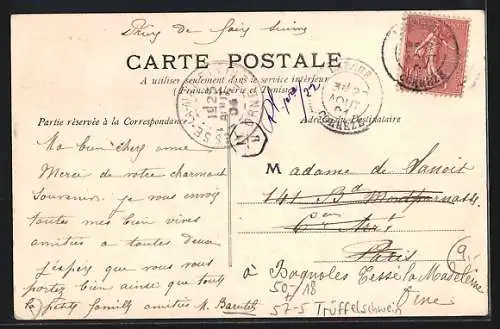 Prière de faire suivre
CARTE POSTALE
A utiliser seulement dans le service intérieur
(France, Algérie et Tunisie)
Partie réservée à la Correspondance
Adresse du Destinataire
CORRÈZE
AOUT
ORNE
Ma bien chère amie
Merci de votre charmant
souvenir. je vous envoie
toutes mes bien vives
amitiés à toutes deux
j'espère que vous vous
portez bien ainsi que toute
la petite famille amitiés M.
M adame de
141 Bd Montparnasse
Paris
à Bagnoles Tessé la Madeleine
Orne
9.
50-/18
57-5 Trüffelschwein